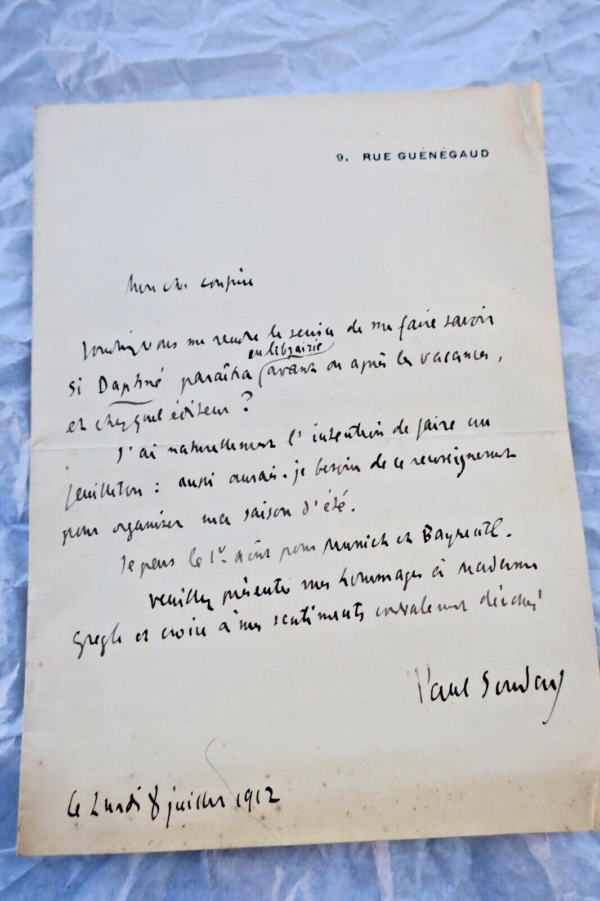 9, RUE GUÉNÉGAUD
Mon cher confrère
Voudriez-vous me rendre le service de me faire savoir
si Daphné paraîtra en librairie avant ou après les vacances,
et chez quel éditeur ?
J'ai naturellement l'intention de faire un
feuilleton : aussi aurais-je besoin de ce renseignement
pour organiser ma saison d'été.
Je pars le 1er août pour Munich et Bayreuth.
Veuillez présenter mes hommages à Madame
Gregh et croire à mes sentiments cordialement dévoués
Paul Souday
Le Lundi 8 juillet 1912